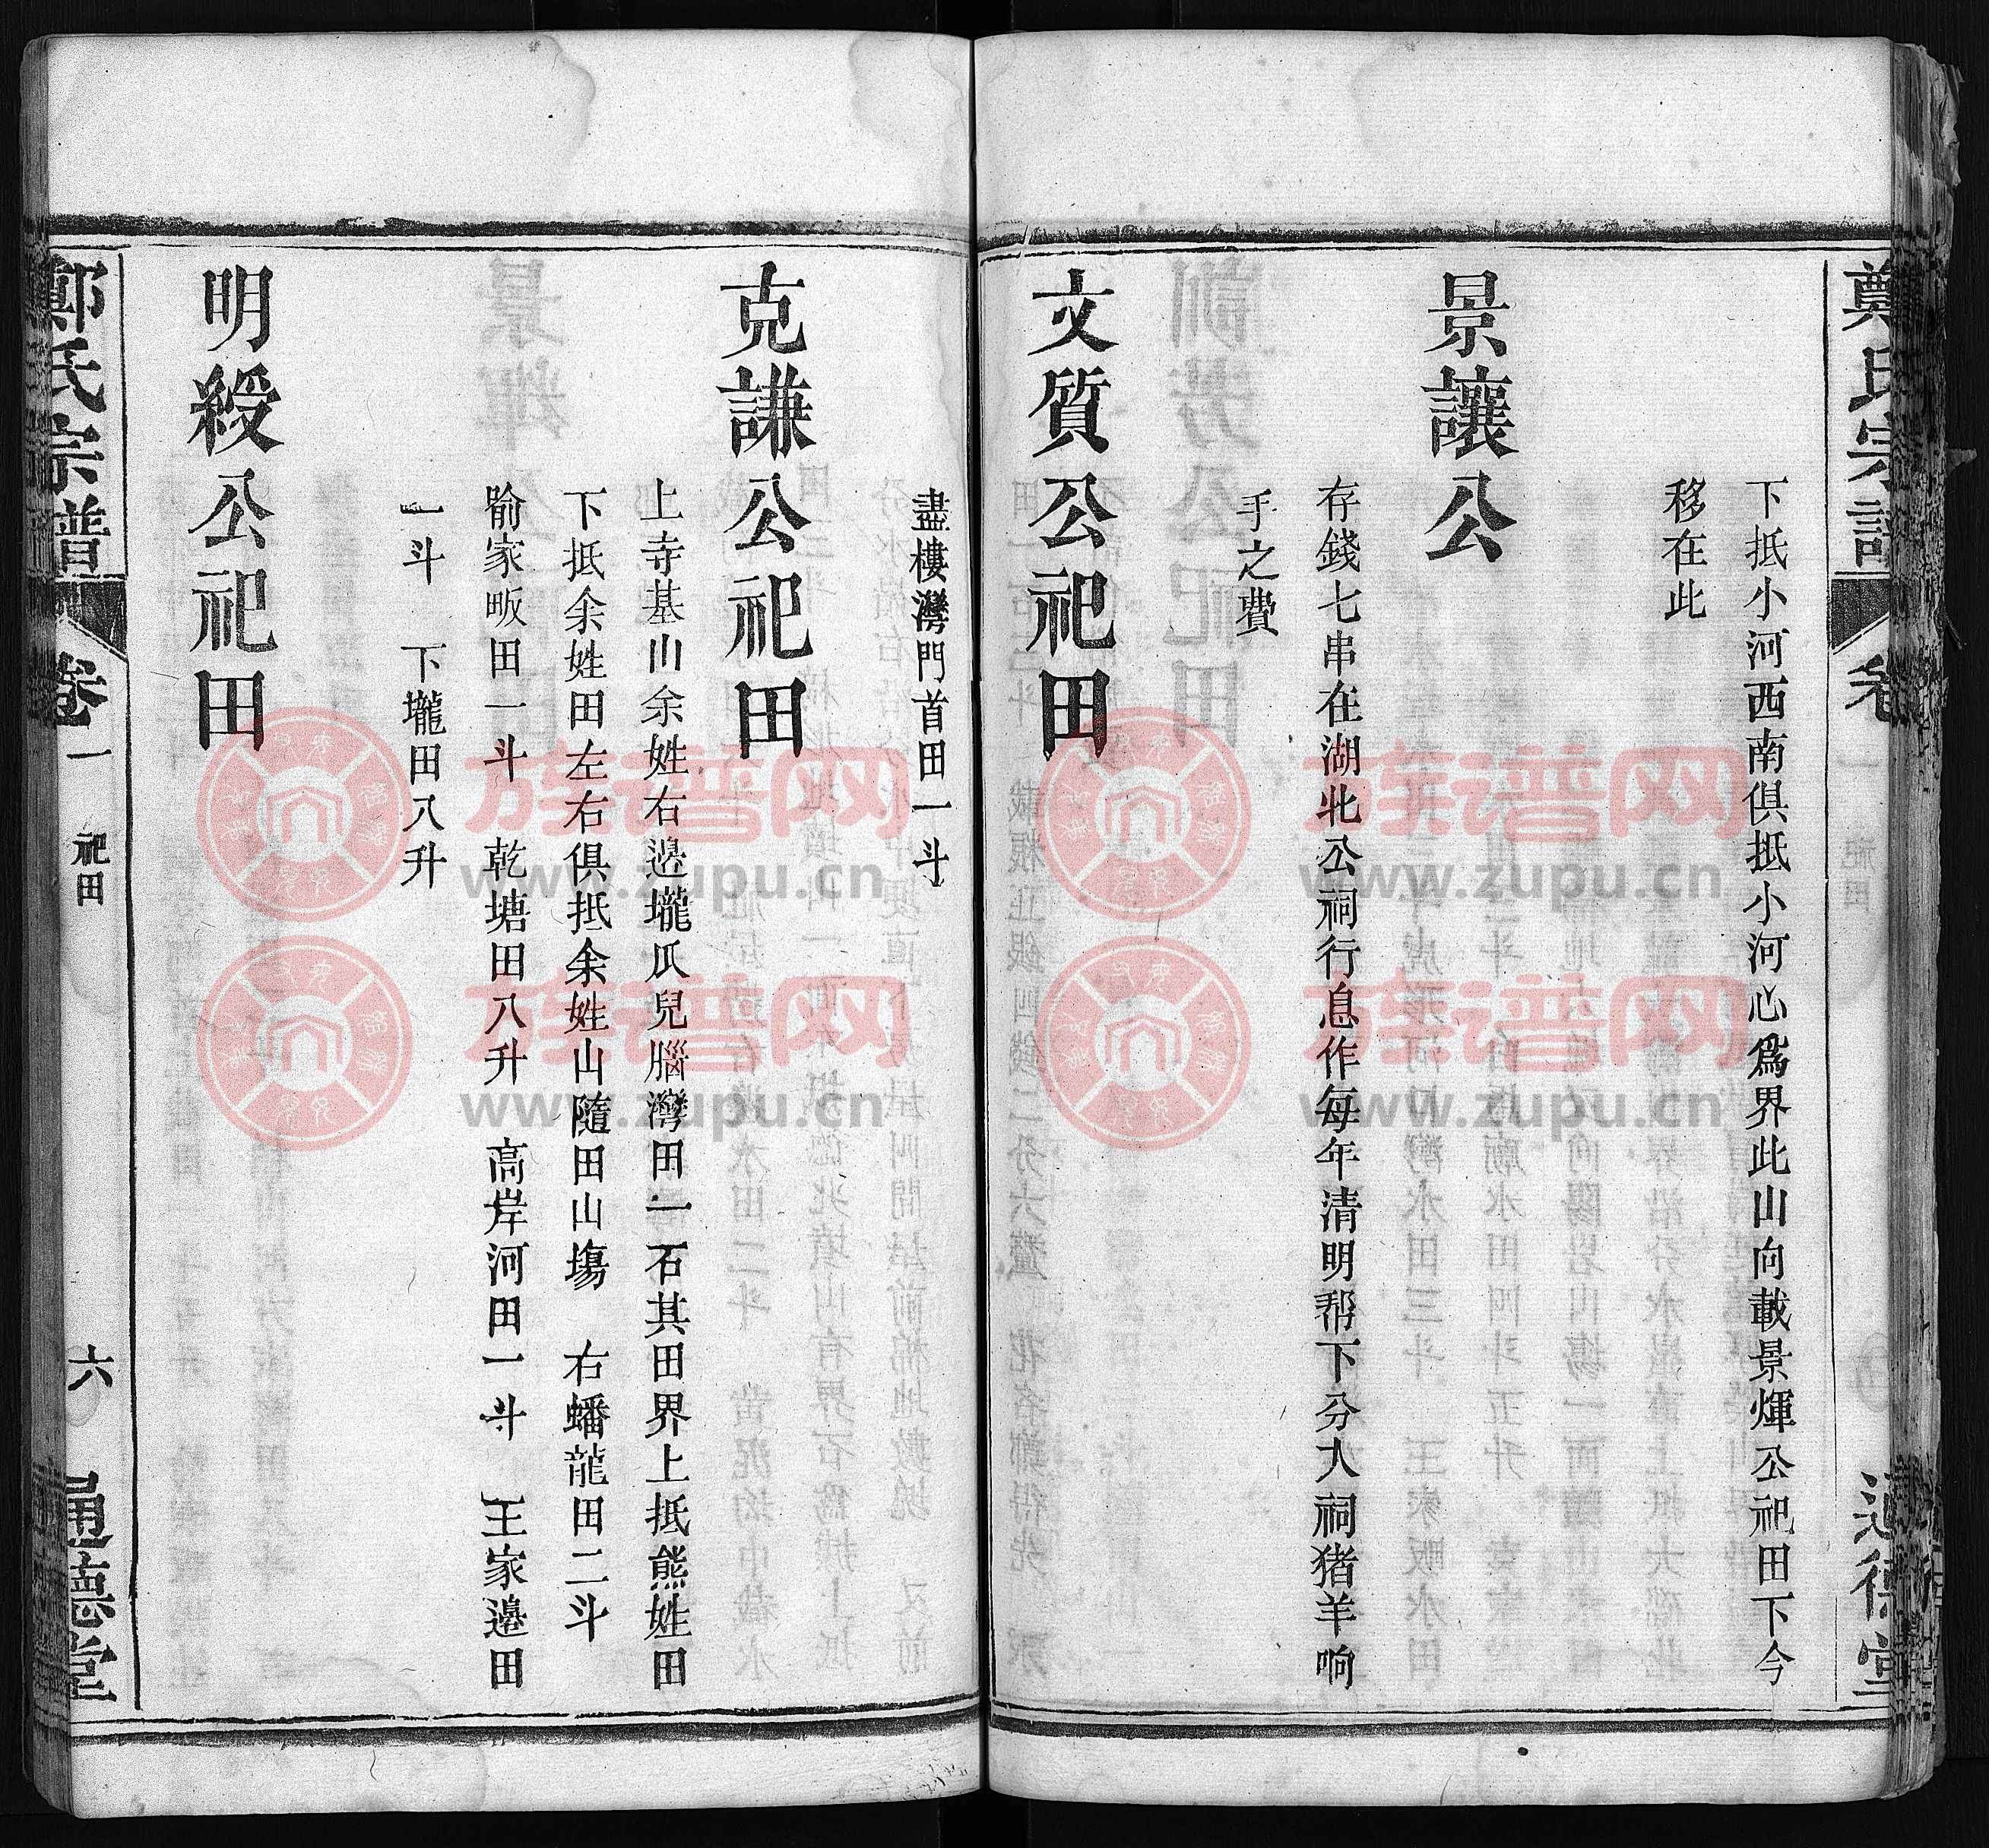 鄭氏宗譜
卷一
祀田
通德堂
下抵小河西南俱抵小河心爲界此山向載景煇公祀田下今
移在此
景讓公
存錢七串在湖北公祠行息作每年清明帮下分大祠猪羊响
手之費
文質公祀田
盡樓灣門首田一斗
克謙公祀田
上寺基山余姓右邊壠瓜兒腦灣田一石其田界上抵熊姓田
下抵余姓田左右俱抵余姓山隨田山塲 右蟠龍田二斗
喻家畈田一斗 乾塘田八升 高岸河田一斗 王家邊田
一斗 下壠田八升
明綬公祀田
鄭氏宗譜
卷一
祀田
六
通德堂
族谱网
www.zupu.cn
族谱网
www.zupu.cn
族谱网
www.zupu.cn
族谱网
www.zupu.cn